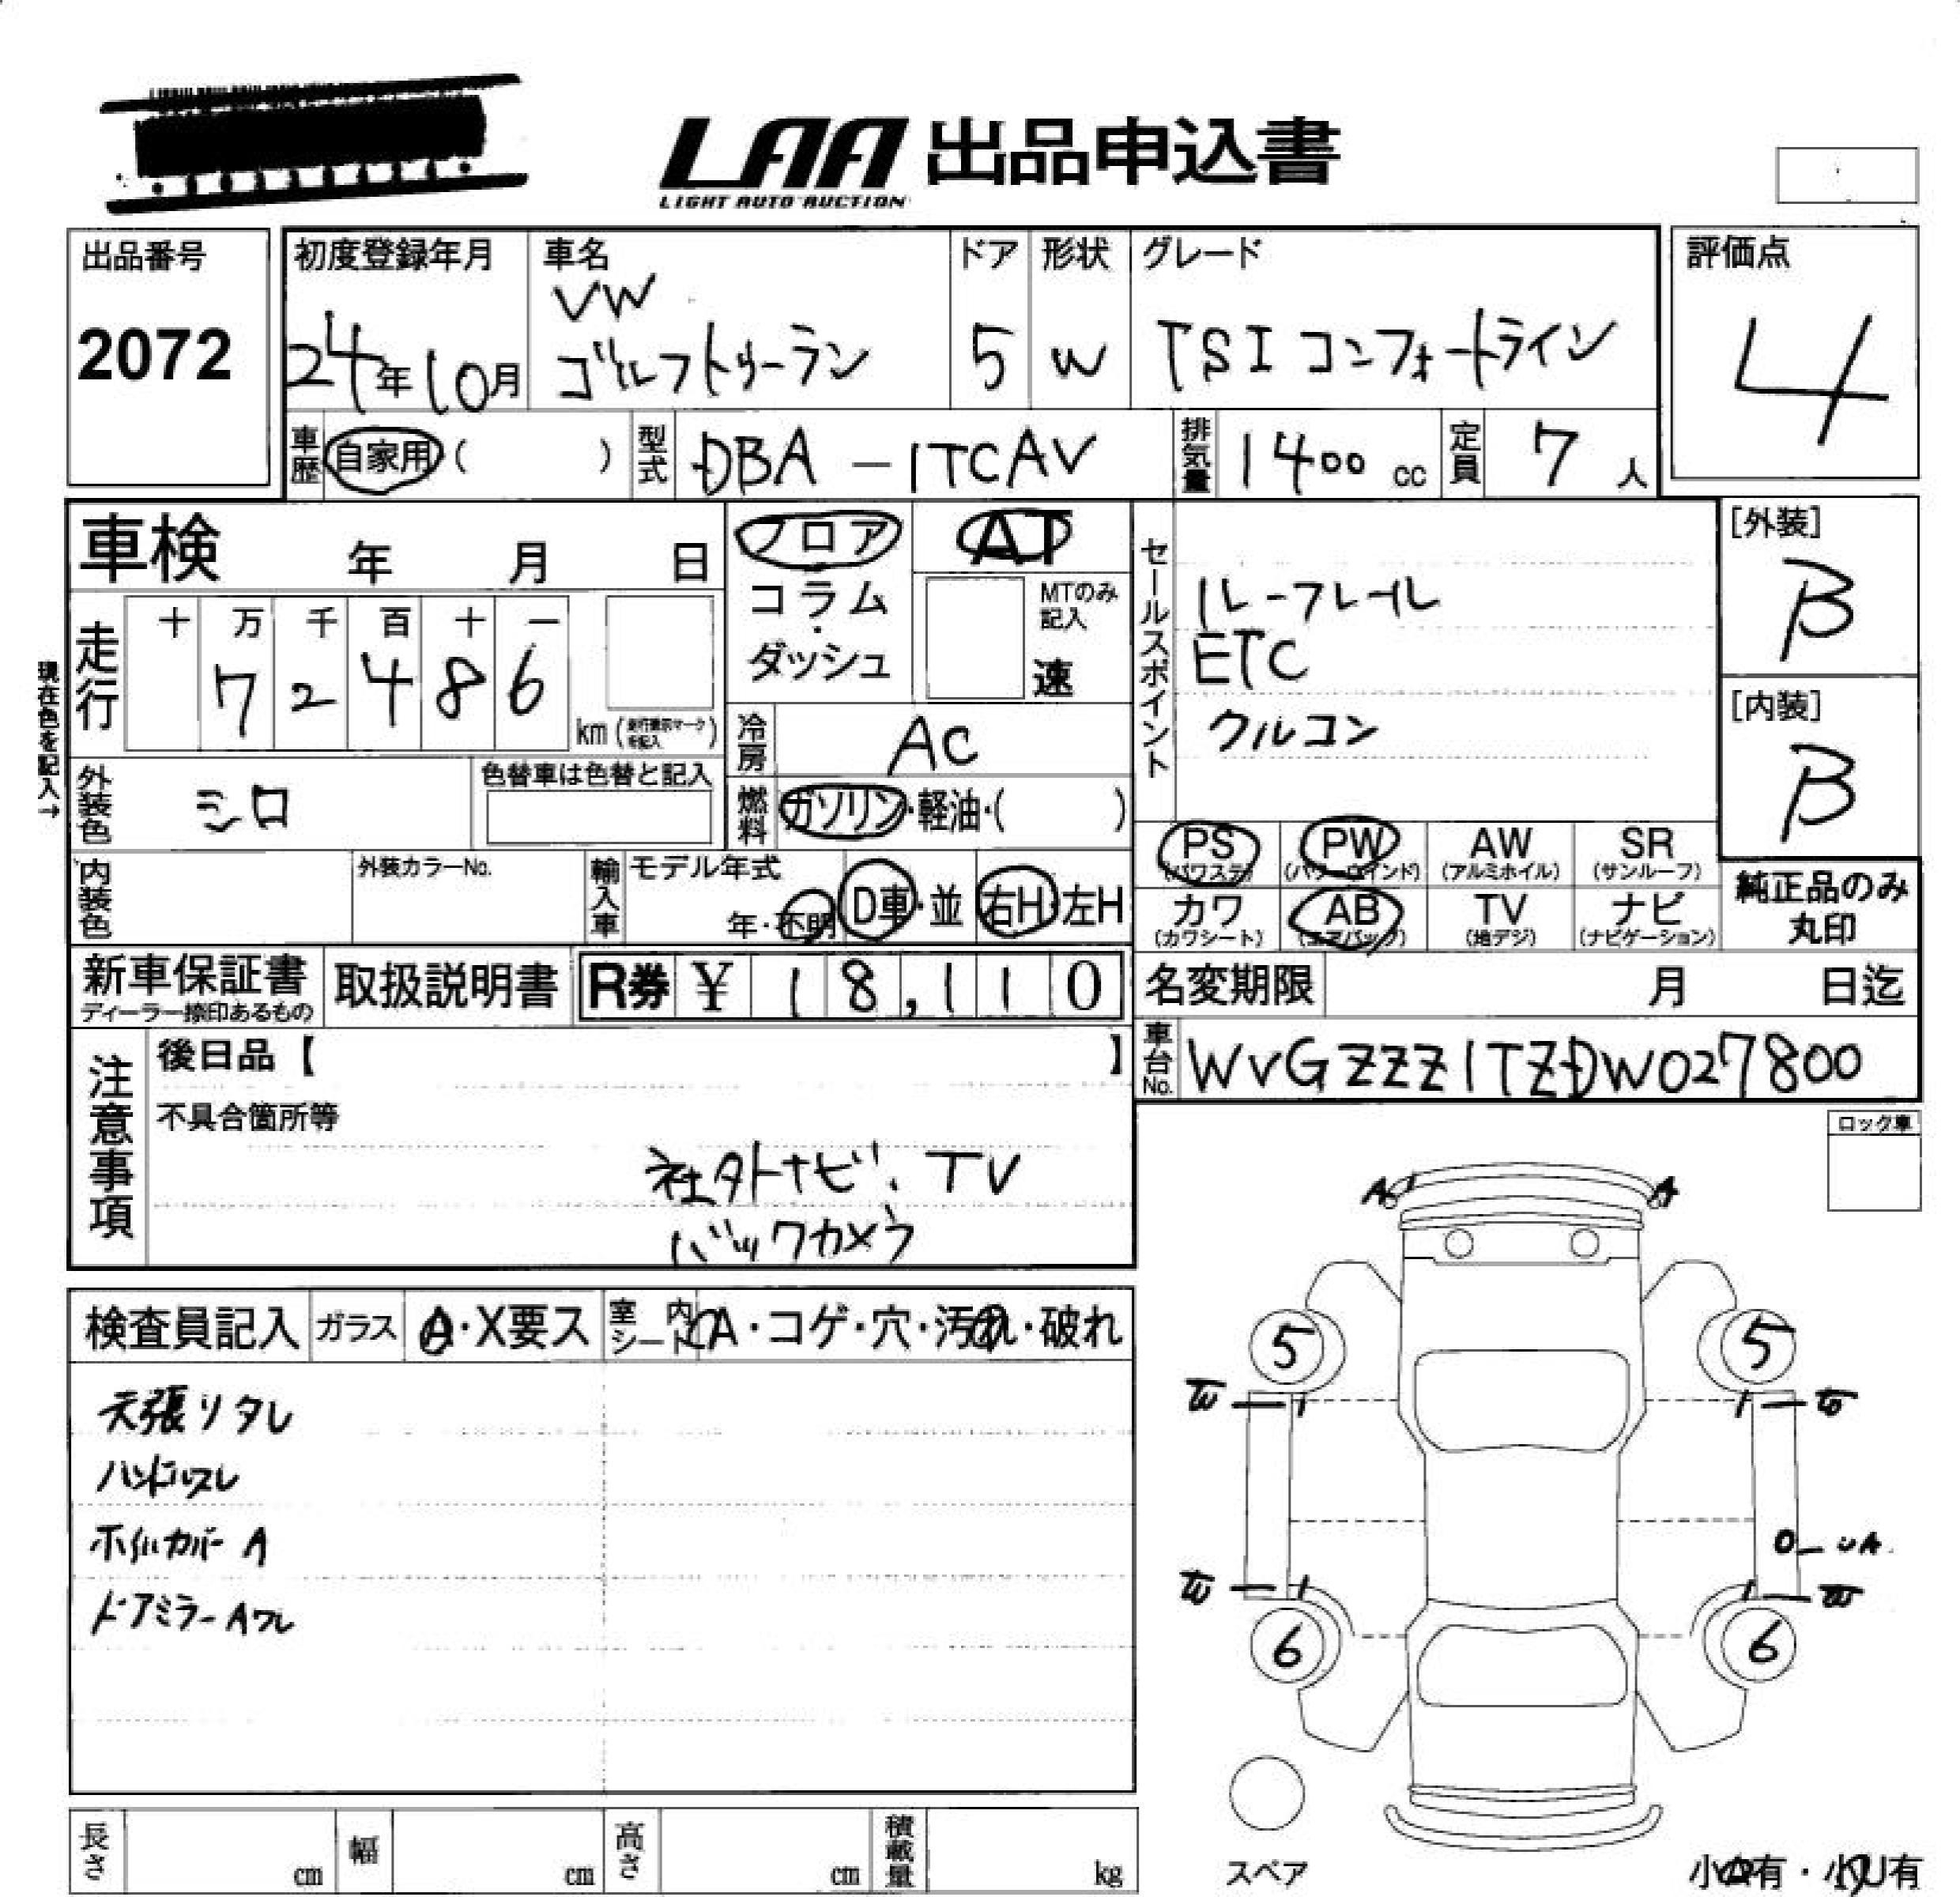 LAA 出品申込書
LIGHT AUTO AUCTION
出品番号
2072
初度登録年月
24年10月
車名
VW
ゴルフトゥーラン
ドア
5
形状
W
グレード
TSI コンフォートライン
評価点
4
車歴 自家用 ( )
型式 DBA-1TCAV
排気量 1400 cc
定員 7 人
車検 年 月 日
フロア
コラム・
ダッシュ
AT
MTのみ
記入
速
セールスポイント
ルーフレール
ETC
クルコン
[外装]
B
[内装]
B
現在色を記入→
走行
十 万 千 百 十 一
7 2 4 8 6
km (走行表示マーク
を記入)
冷房 AC
外装色 シロ
色替車は色替と記入
燃料 ガソリン・軽油・( )
PS
(パワステ)
PW
(パワーウインド)
AW
(アルミホイル)
SR
(サンルーフ)
内装色
外装カラーNo.
輸入車
モデル年式
年・不明
D車・並
右H・左H
カワ
(カワシート)
AB
(エアバック)
TV
(地デジ)
ナビ
(ナビゲーション)
純正品のみ
丸印
新車保証書
ディーラー捺印あるもの
取扱説明書
R券 ¥ 18,110
名変期限 月 日迄
注意事項
後日品【 】
不具合箇所等
社外ナビ、TV
バックカメラ
車台No. WVGZZZ1TZDW027800
ロック車
検査員記入
ガラス
A・X要ス
室内
シート
A・コゲ・穴・汚れ・破れ
天張りタレ
ハンドルスレ
ホイルカバー A
ドアミラー A
A
A
5
5
W
W
UA
W
W
6
6
スペア
長さ cm
幅 cm
高さ cm
積載量 kg
小A有・小U有